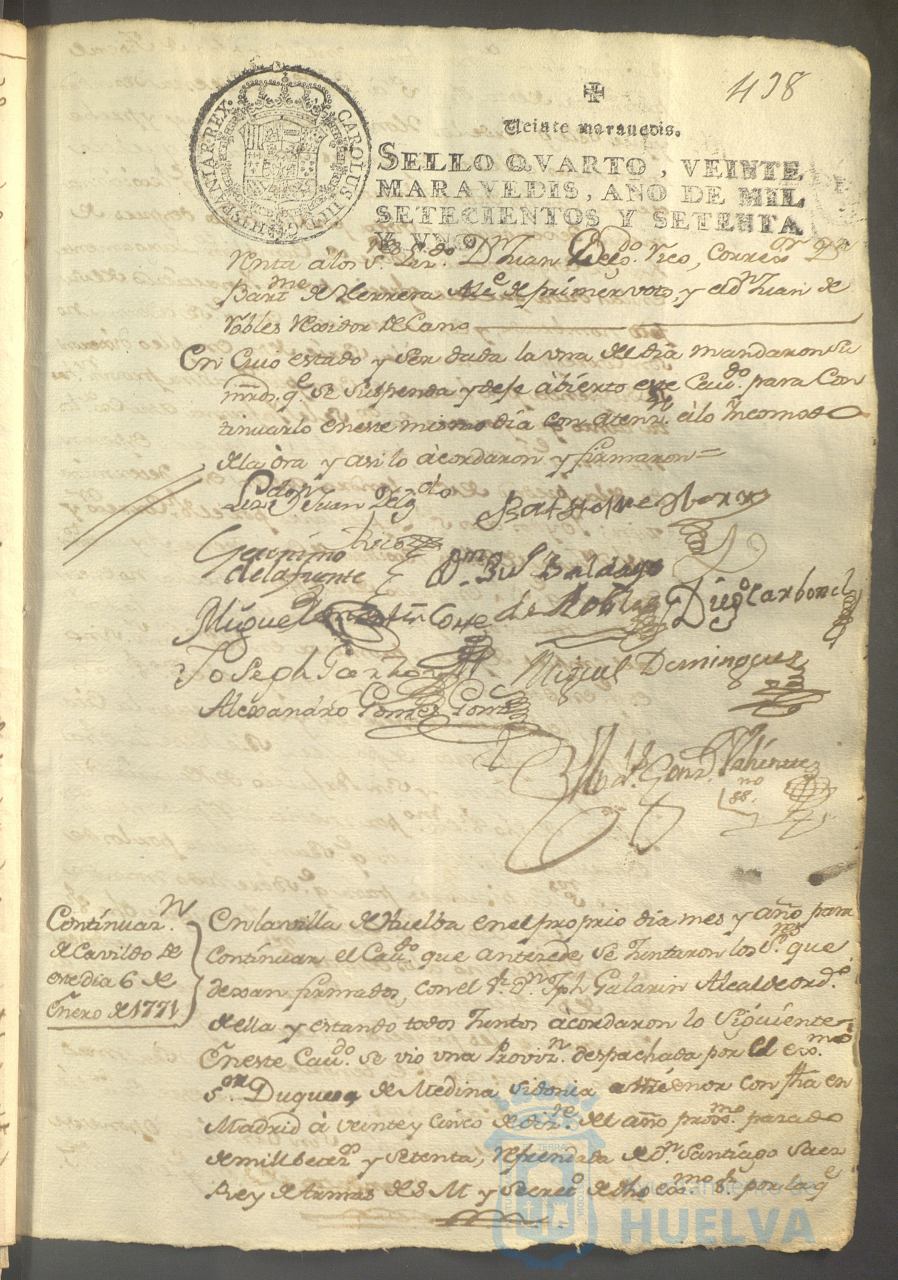 438
Veinte maravedis.
SELLO QVARTO, VEINTE
MARAVEDIS, AÑO DE MIL
SETECIENTOS Y SETENTA
Y VNO.
CAROLUS III D G HISPANIAR REX
Venta a los Sres Lizdo Dn Juan Rico, Correxor Dn
Barme de Herrera Alce de primer voto, y el Dn Juan de
Robles Rexidor Decano
En Cuio estado y ser dada la vna del dia mandaron su
mrds. qe se suspenda y deje abierto este Caudo. para Con
tinuarlo en este mismo dia con atenn. á lo Incomodo
de la ora y asi lo acordaron y firmaron =
Lizdo Dn Juan
Rico
Geronimo
de la fuente
Miguel
de Robles
Diego Carbonel
Joseph
Miguel Dominguez
Alexandro Gomez
Continuan.
de Cavildo de
este dia 6 de
Enero de 1771
En la villa de Huelba en el proprio dia mes y año para
Continuar el Caudo. que antezede, se Juntaron los Sres. que
dexan firmados, con el Sr. Dn Jph Galarin Alcalde ordo.
de ella y estando todos Juntos acordaron lo Siguiente
En este Caudo. se vio vna Provizn. despachada por el exmo.
Sor. Duque de Medina Sidonia mi Señor con fha en
Madrid á veinte y Cinco de dizre. del año proxmo. pasado
de mill setezs. y Setenta, refrendada de Dn. Santiago Saez
Rey de Armas de S M y Secreto. de dho exmo Sr. por la qe
Ayuntamiento de
HUELVA